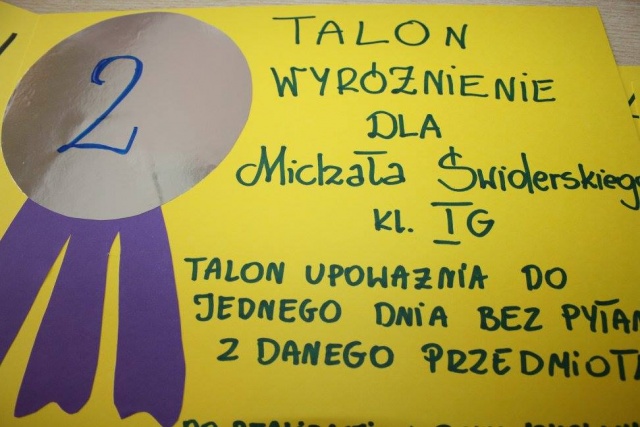 2
TALON
WYRÓŻNIENIE
DLA
Michała Świderskieg
kl. IG
TALON UPOWAŻNIA DO
JEDNEGO DNIA BEZ PYTAŃ
Z DANEGO PRZEDMIOT